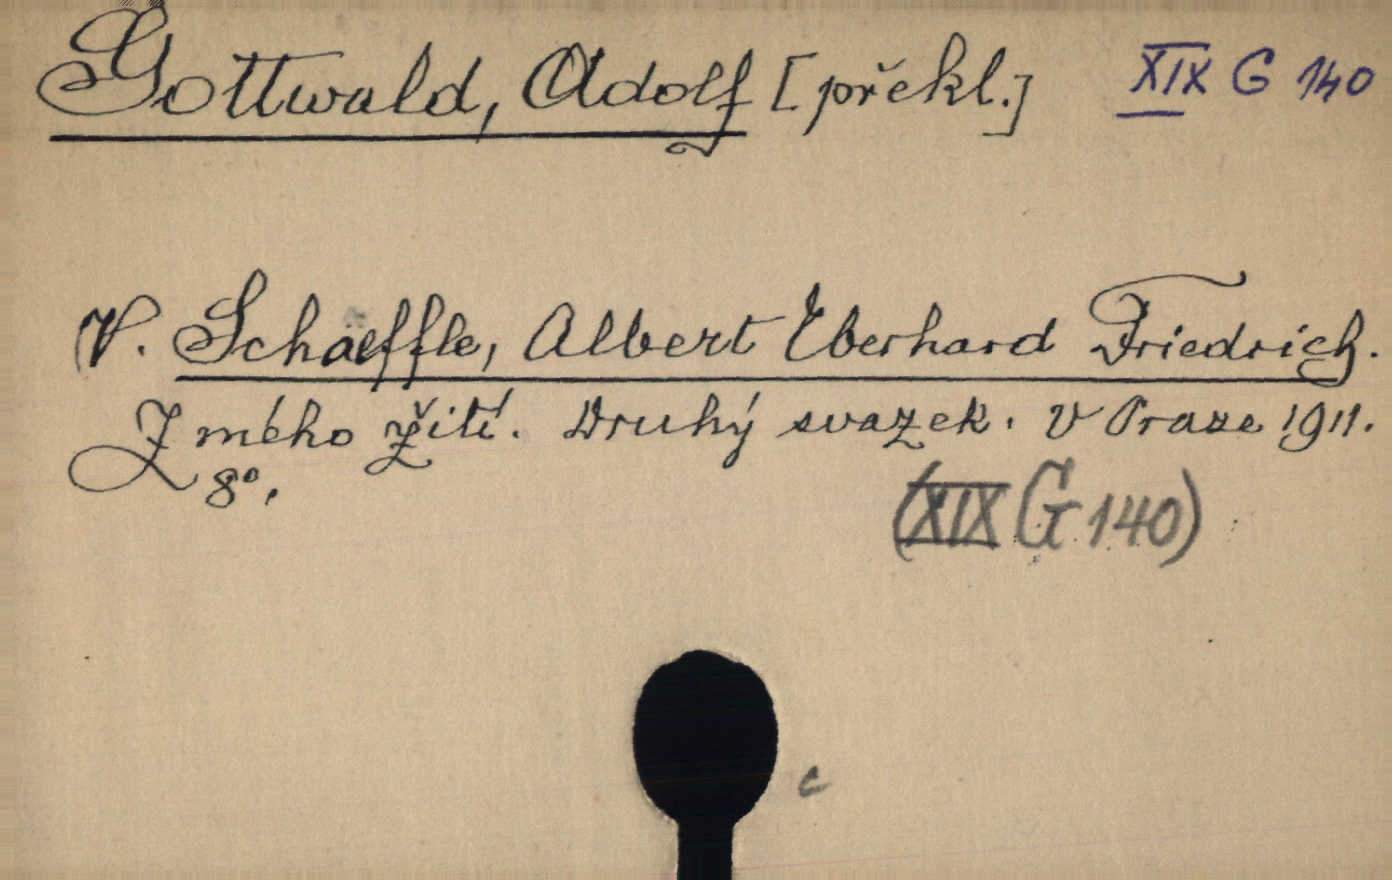 Gottwald, Adolf [překl.] XIX G 140
V. Schaeffle, Albert Eberhard Friedrich.
Z mého žití. Druhý svazek. V Praze 1911.
8°.
(XIX G 140)
c